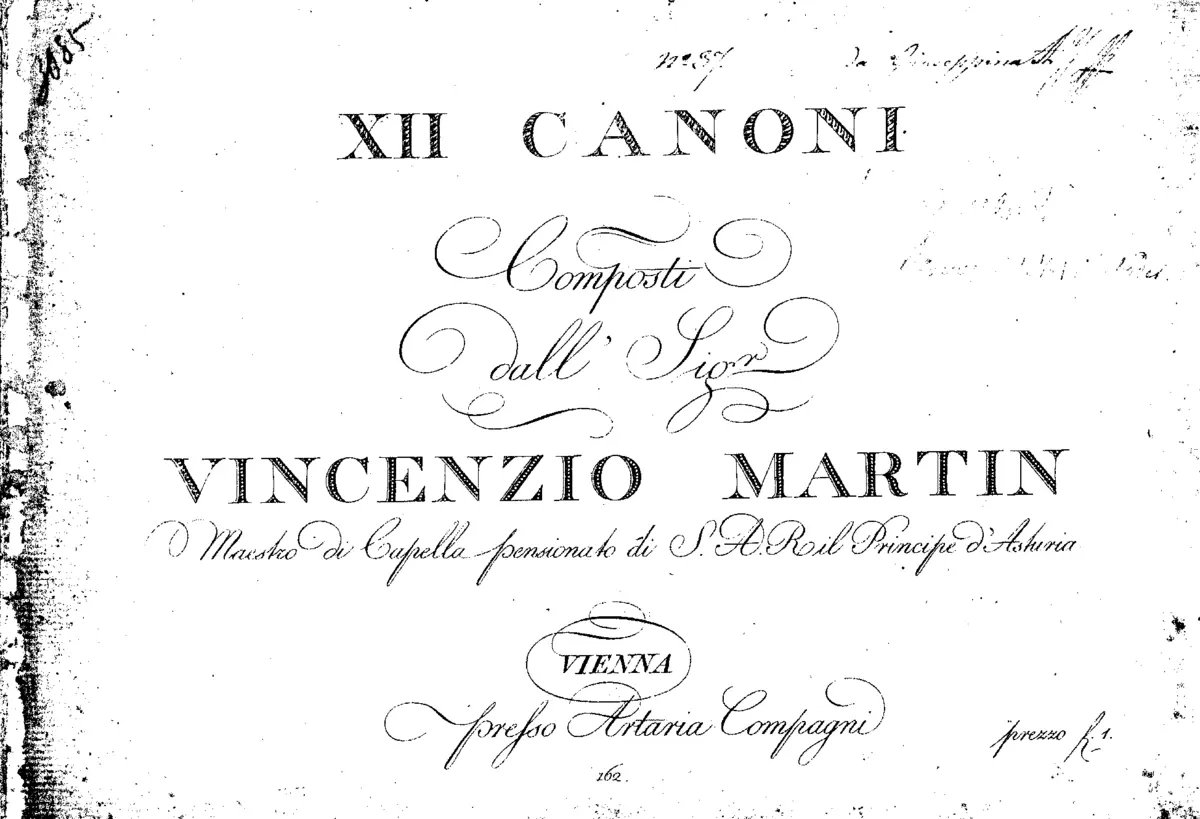 1085
No 37. da Giuseppina
XII CANONI
Composti
dall' Sigr
VINCENZIO MARTIN
Maestro di Capella pensionato di S. A. R il Principe d'Asturia
VIENNA
presso Artaria Compagni
prezzo f. 1.
162.